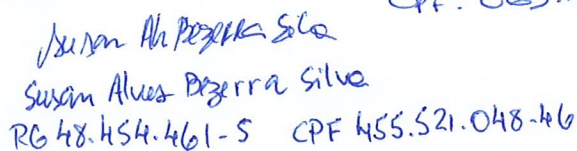 CPF. 065.
Susan Al Bezerra Silva
Susan Alves Bezerra Silva
RG 48.454.461-5 CPF 455.521.048-46